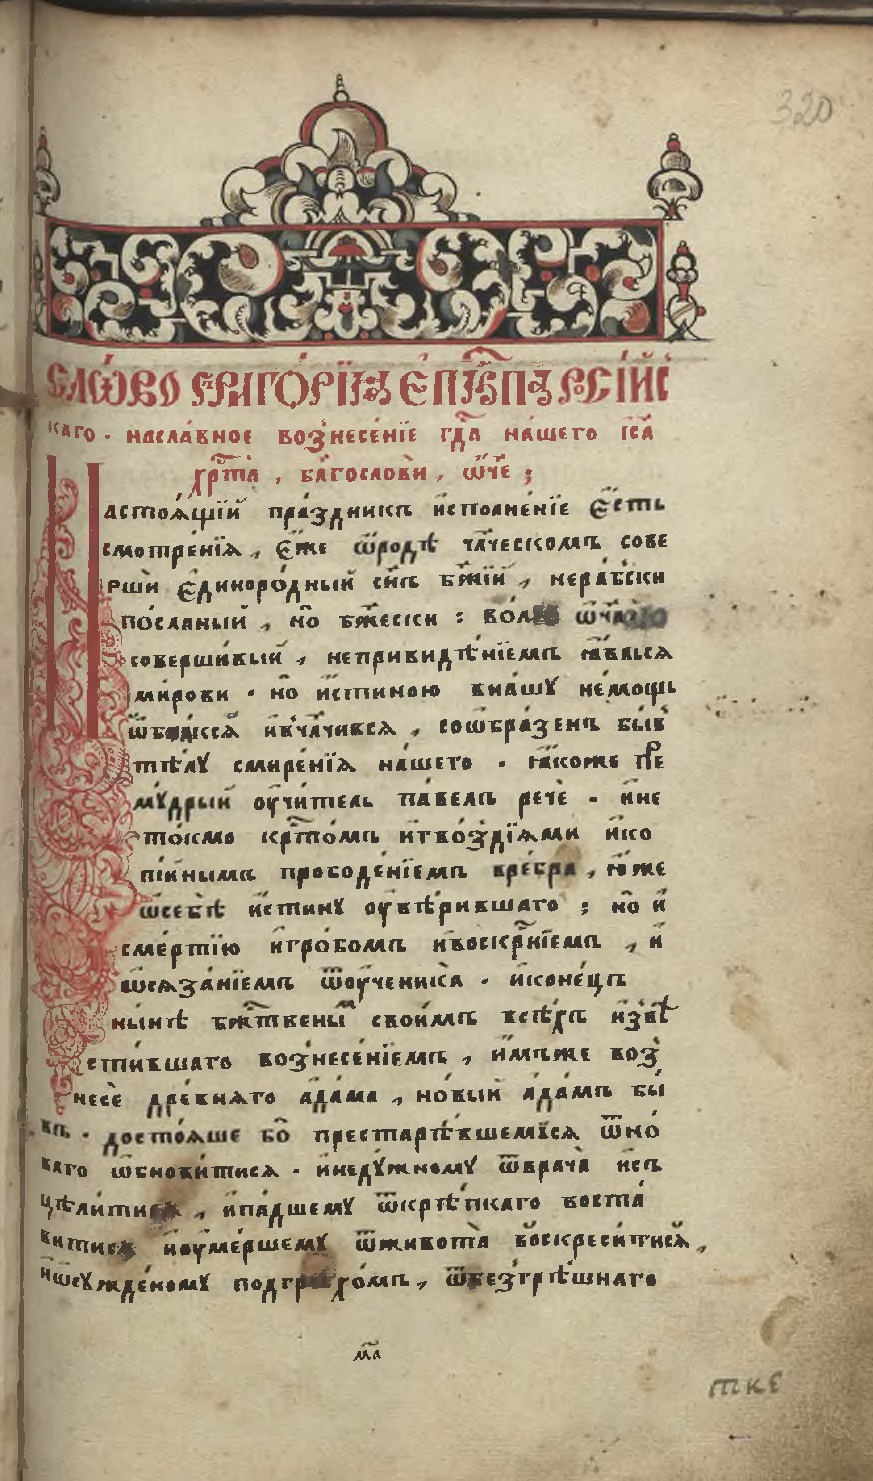 320
сло́во григо́рїꙗ є҆пⷭ҇кпа рѡсі́йс
каго · насла́вное вознесе́нїе гдⷭ҇а на́шего іс҃а
хрⷭ҇та̀ , бл҃гословѝ , ѿ́че ;
Настоѧ́щїй пра́здникъ и҆сполне́нїе є҆́сть
смотре́нїѧ , є҆́же ѡ҆ро́дѣ чл҃ческомъ сове
ршѝ є҆диноро́дный сн҃ъ бж҃їй , нера́бски
по́сланый , но̀ бж҃ески : во́лю
соверши́вый , непривидѣ́нїемъ ꙗ҆́влься
ми́рови · но̀ и҆́стиною вна́шꙋ не́мощь
и҆вчл҃чивсѧ , соѡбра́зенъ бы́въ
тѣ́лꙋ смире́нїѧ на́шего · ꙗ҆́коже пре
мꙋ́дрый ᲂу҆чи́тель па́велъ речѐ · и҆не
то́кмо крⷭ҇то́мъ и҆гвоздїѧ́ми и҆ко
пі́йнымъ прободе́нїемъ вре́бра , ю҆́же
ѡ҆себѣ̀ и҆́стинꙋ ᲂу҆вѣ́рившаго ; но̀ и҆
сме́ртїю и҆гро́бомъ и҆воскрⷭ҇нїемъ , и҆
ѡ҆сѧза́нїемъ ѿᲂу҆ченика̀ · и҆коне́цъ
ны́нѣ бжⷭ҇твенымъ свои́мъ всѣ́хъ и҆звѣ̀
сти́вшаго вознесе́нїемъ , и҆́мъже воз
несѐ дре́внѧго а҆да́ма , но́вый а҆да́мъ бы́
въ · достоѧ́ше бо̀ престарѣ́вшемꙋсѧ ѿно́
ваго ѡ҆бнови́тисѧ · и҆недꙋ́жномꙋ ѿврача̀ и҆съ
цѣли́тисѧ , и҆па́дшемꙋ ѿкрѣ́пкаго воста́
витисѧ и҆ᲂу҆ме́ршемꙋ ѿживота̀ воскреси́тисѧ ,
и҆ѡ҆сꙋжде́номꙋ подгрѣхо́мъ , ѿбезгрѣ́шнаго
м҃а
тке